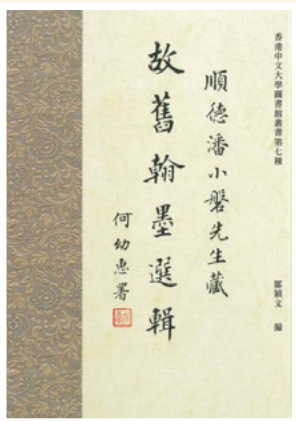 香港中文大學圖書館叢書第七種
順德潘小磐先生藏
故舊翰墨選輯
何幼惠署
鄒穎文 編